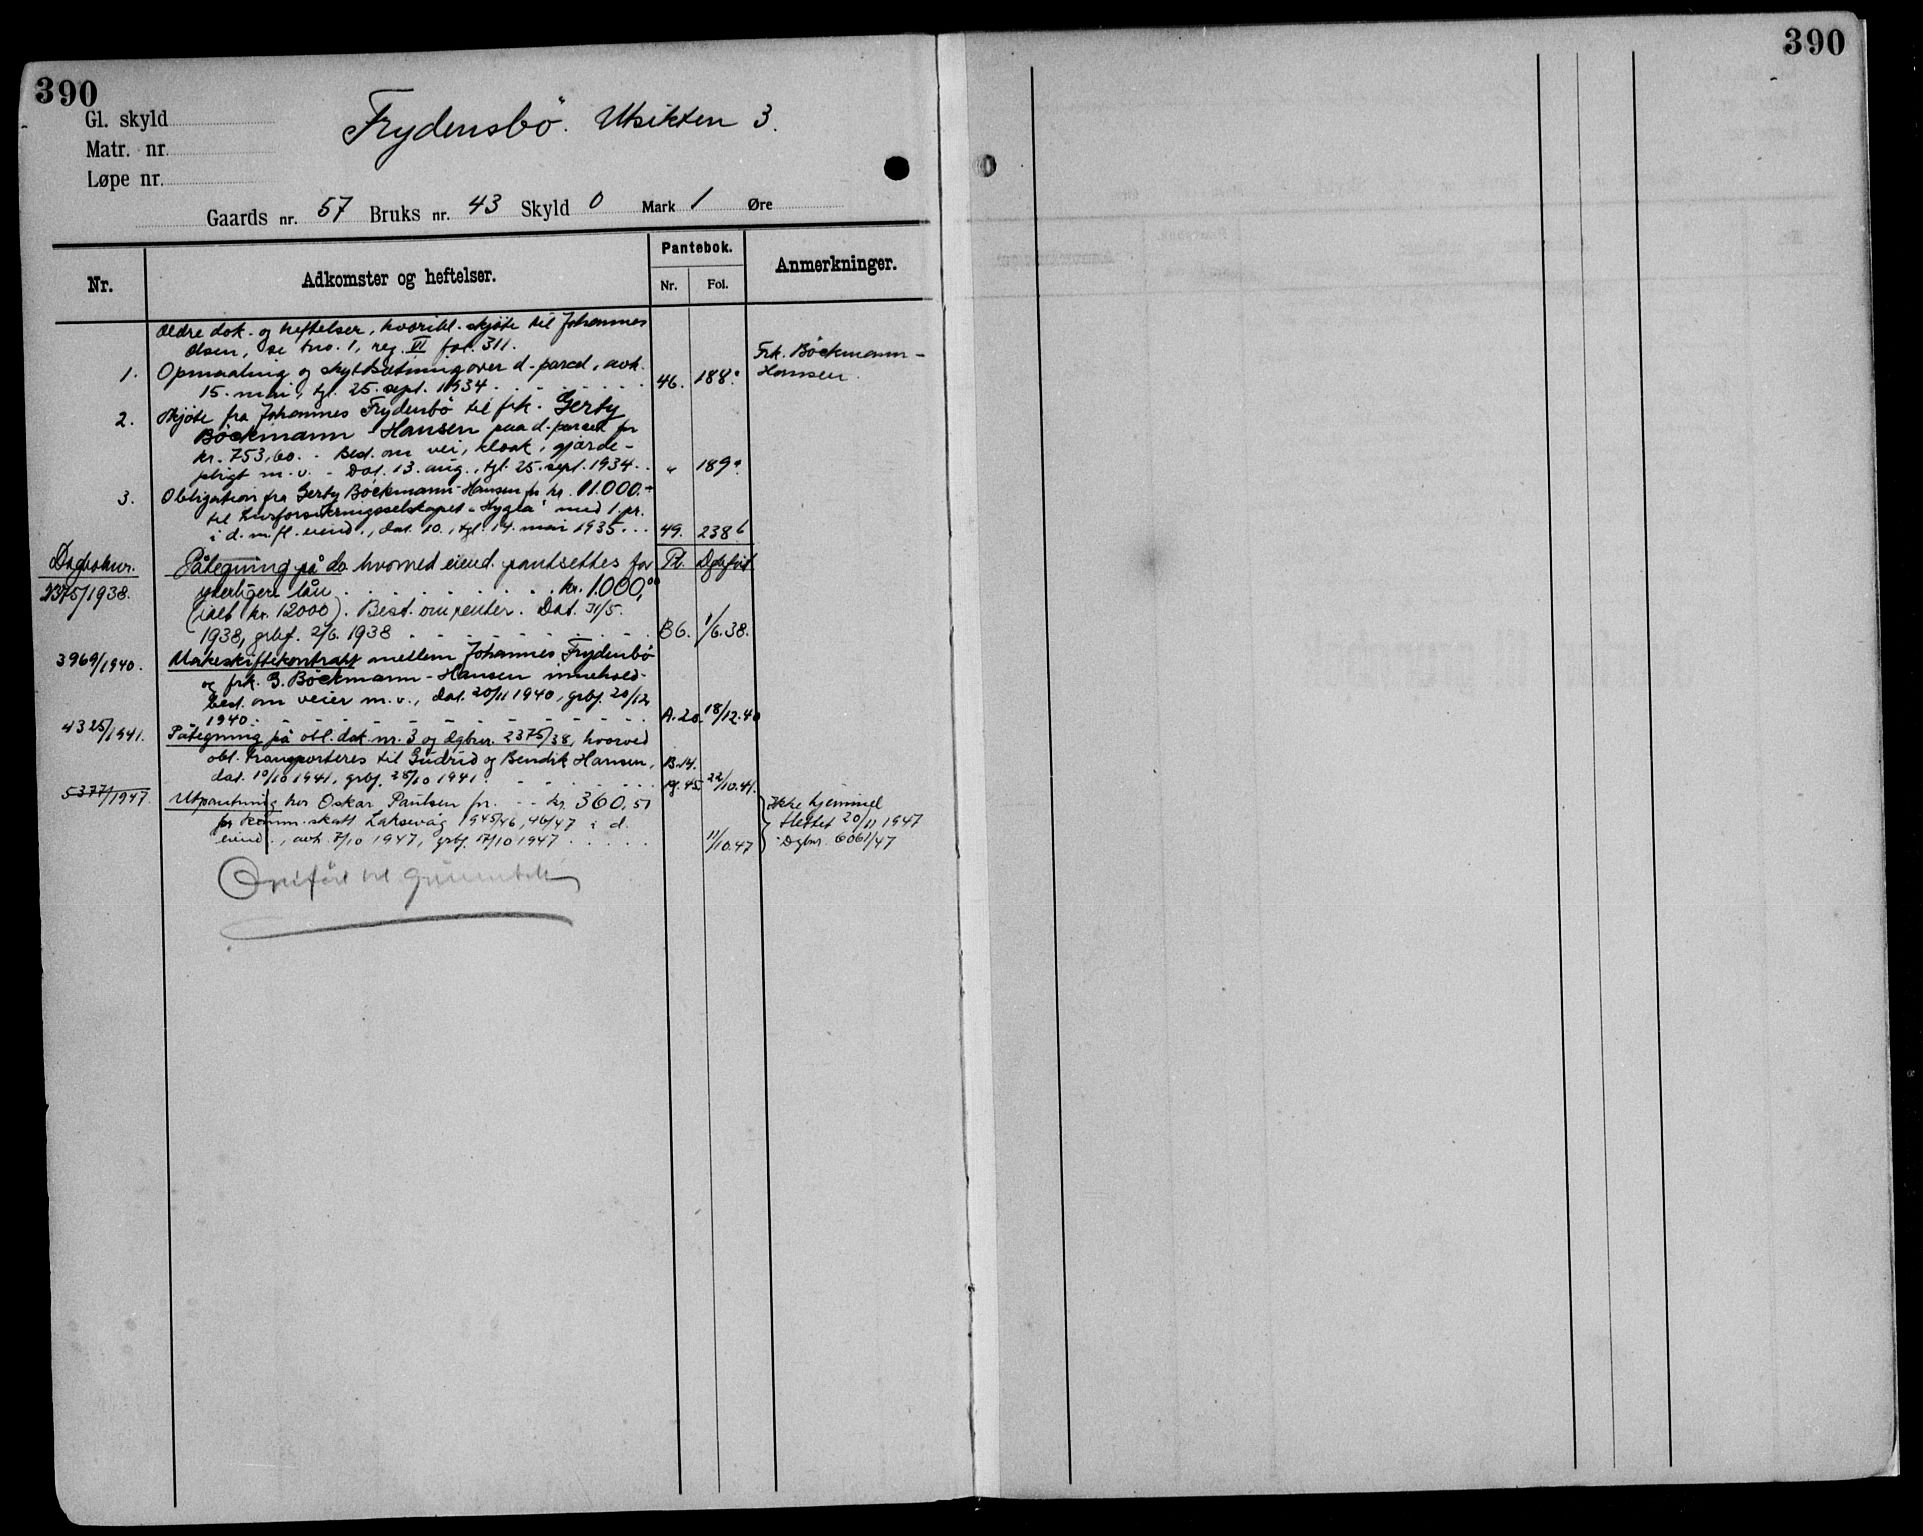 390
390
Gl. skyld
Matr. nr.
Løpe nr.
Frydensbö. Utsikten 3.
Gaards nr. 57 Bruks nr. 43 Skyld 0 Mark 1 Øre
Nr.
Adkomster og heftelser.
Pantebok.
Nr. Fol.
Anmerkninger.
Ældre dok. og heftelser, hvoribl. skjöte til Johannes
Olsen, se bno. 1, reg. VI fol. 311.
Frk. Böckmann-
Hansen.
1. Opmaaling og skyldsætning over d. parcel, avh.
15. mai, tgl. 25. sept. 1934. 46. 188a
2. Skjöte fra Johannes Frydenbö til frk. Gerty
Böckmann-Hansen paa d. parcel for
kr. 753,60. - Best. om vei, kloak, gjærde-
pligt m.v. - Dat. 13. aug., tgl. 25. sept. 1934. " 189a
3. Obligation fra Gerty Böckmann-Hansen for kr. 11.000.-
til Livsforsikringsselskapet "Hygea" med 1. pr.
i d. m. fl. eiend., dat. 10., tgl. 14. mai 1935. 49. 238b
Dagboknr. Påtegning på do hvorved eiend. pantsettes for Pb. Dgbf.
2375/1938. ytterligere lån kr. 1.000,00
(ialt kr. 12000). Best. om renter. Dat. 31/5.
1938, grbf. 2/6. 1938 B6. 1/6.38.
3969/1940. Makeskiftekontrakt mellem Johannes Frydenbö
og frk. G. Böckmann-Hansen innehold.
best. om veier m.v., dat. 20/11 1940, grbf. 20/12
1940. A.20. 18/12.40
4325/1941. Påtegning på obl. dok. nr. 3 og dgbnr. 2375/38, hvorved
obl. transporteres til Gudrid og Bendik Hansen, B.14.
dat. 10/10 1941, grbf. 28/10 1941. pg. 45. 22/10.41.
5377/1947. Utpantning hos Oskar Paulsen for - - kr. 360,51
for komm. skatt Laksevåg 1945/46, 46/47 i d.
eiend., avh. 7/10 1947, grbf. 17/10 1947 11/10.47
Ikke hjemmel
Slettet 20/11 1947
Dgbnr. 6061/47
Overfört til grunnbok